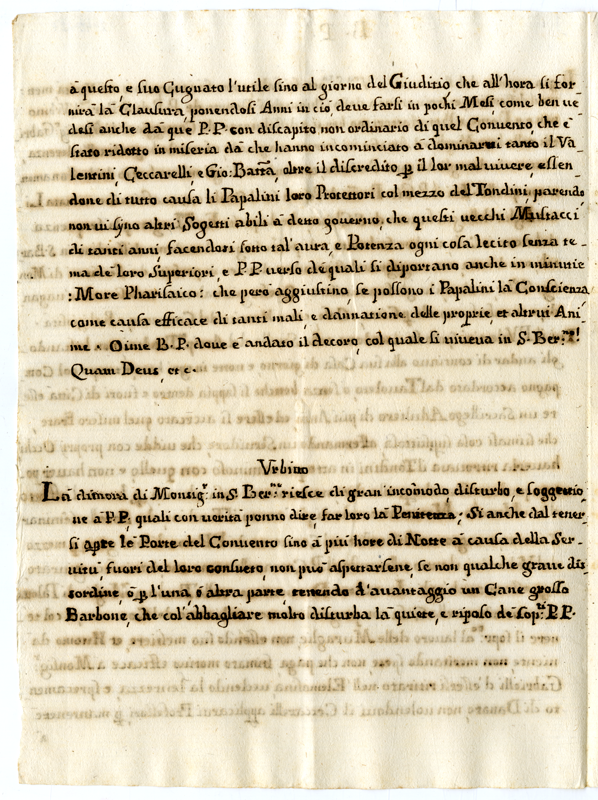 à questo, e suo Cugnato l'utile sino al giorno del Giuditio che all'hora si for-
nirà la Clausura, ponendosi Anni in ciò, deve farsi in pochi Mesi, come ben ve-
desi anche dà que P.P. con discapito non ordinario di quel Convento, che è
stato ridotto in miseria dà che hanno incominciato à dominarvi tanto il Va-
lentini, Ceccarelli, e Gio: Batta, oltre il discredito p il lor mal vivere, essen-
done di tutto causa li Papalini loro Protettori col mezzo del Tondini, parendo
non vi siino altri Sogetti abili à detto governo, che questi vecchi Mustacci
di tanti anni, facendosi sotto tal'aura, e Potenza ogni cosa lecito senza te-
ma de loro Superiori, e P.P. verso de quali si diportano anche in minutie
: More Pharisaico: che però aggiustino, se possono i Papalini la Conscienza,
come causa efficace di tanti mali, e dannatione delle proprie, et altrui Ani-
me. Oime B. P. dove è andato il decoro, col quale si viveva in S. Ber:no!
Quam Deus, et c.
Urbino
La dimora di Monsig.r in S. Ber:no riesce di gran incomodo, disturbo, e soggettio-
ne à P.P. quali con verità ponno dire, far loro la Penitenza, Si anche dal tener-
si apte le Porte del Convento sino à più hore di Notte à causa della Ser-
vitù, fuori del loro consueto, non può aspettarsene, se non qualche grave dis-
sordine, ò p l'una, ò altra parte, tenendo d'avantaggio un Cane grosso
Barbone, che col'abbagliare molto disturba la quiete, e riposo de sop:ti P.P.